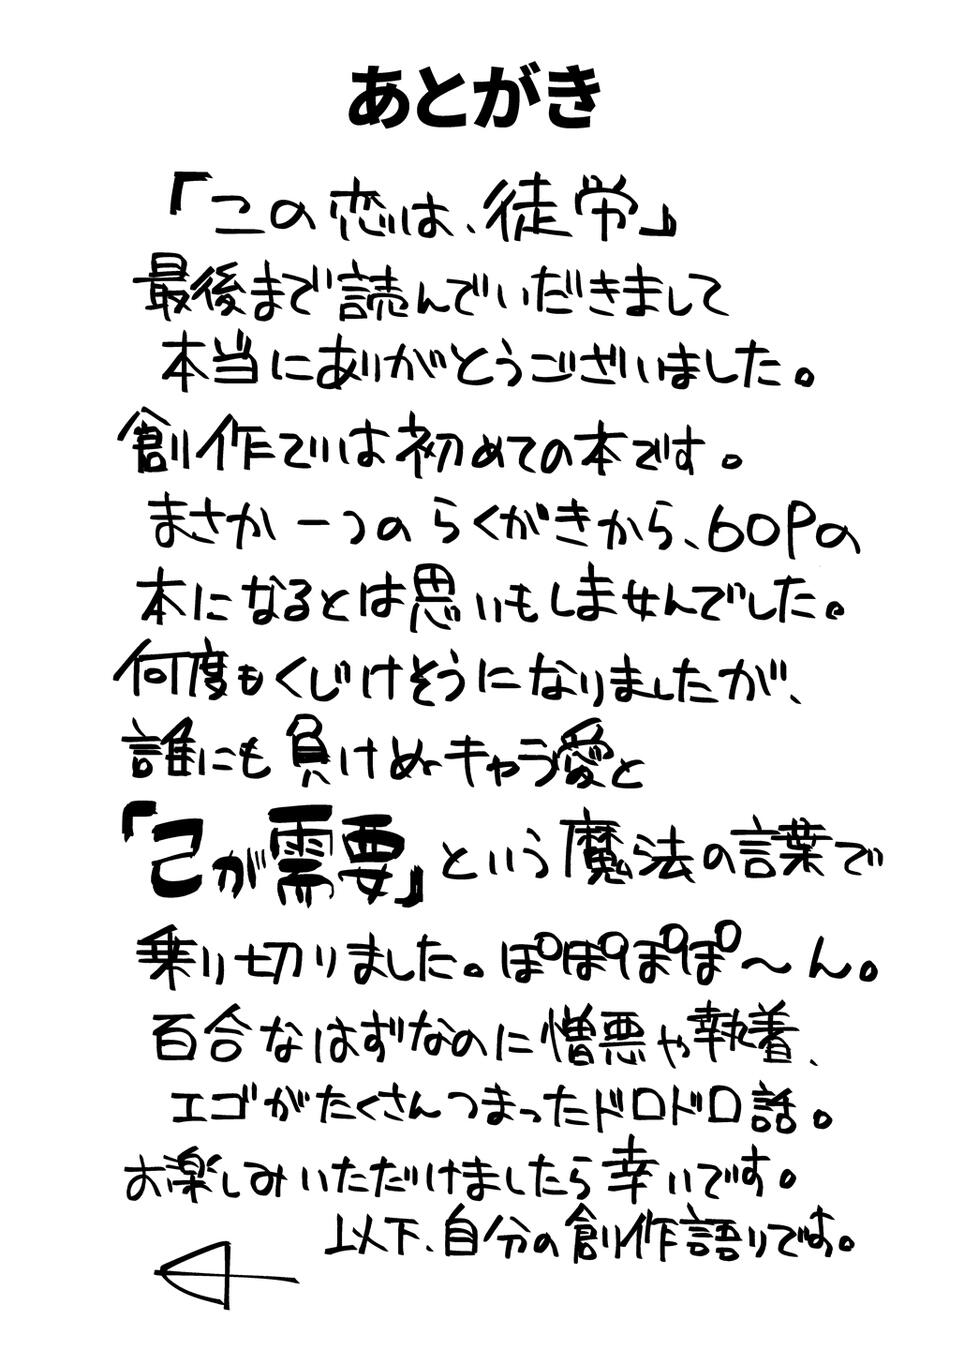 あとがき
「この恋は、徒労」
最後まで読んでいだきまして
本当にありがとうございました。
創作では初めての本です。
まさか一つのらくがきから、60Pの
本になるとは思いもしませんでした。
何度もくじけそうになりましたが、
誰にも負けぬキャラ愛と
「己が需要」という魔法の言葉で
乗り切りました。ぽぽぽぽ〜ん。
百合なはずなのに憎悪や執着、
エゴがたくさんつまったドロドロ話。
お楽しみいただけましたら幸いです。
以下、自分の創作語りです。